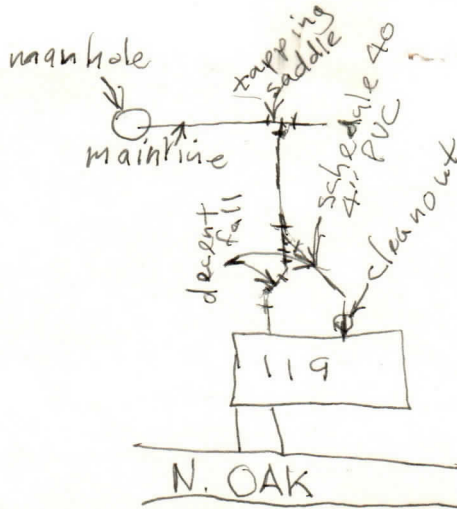 manhole
tapping
saddle
mainline
schedule 40
4" PVC
decent
fall
cleanout
119
N. OAK